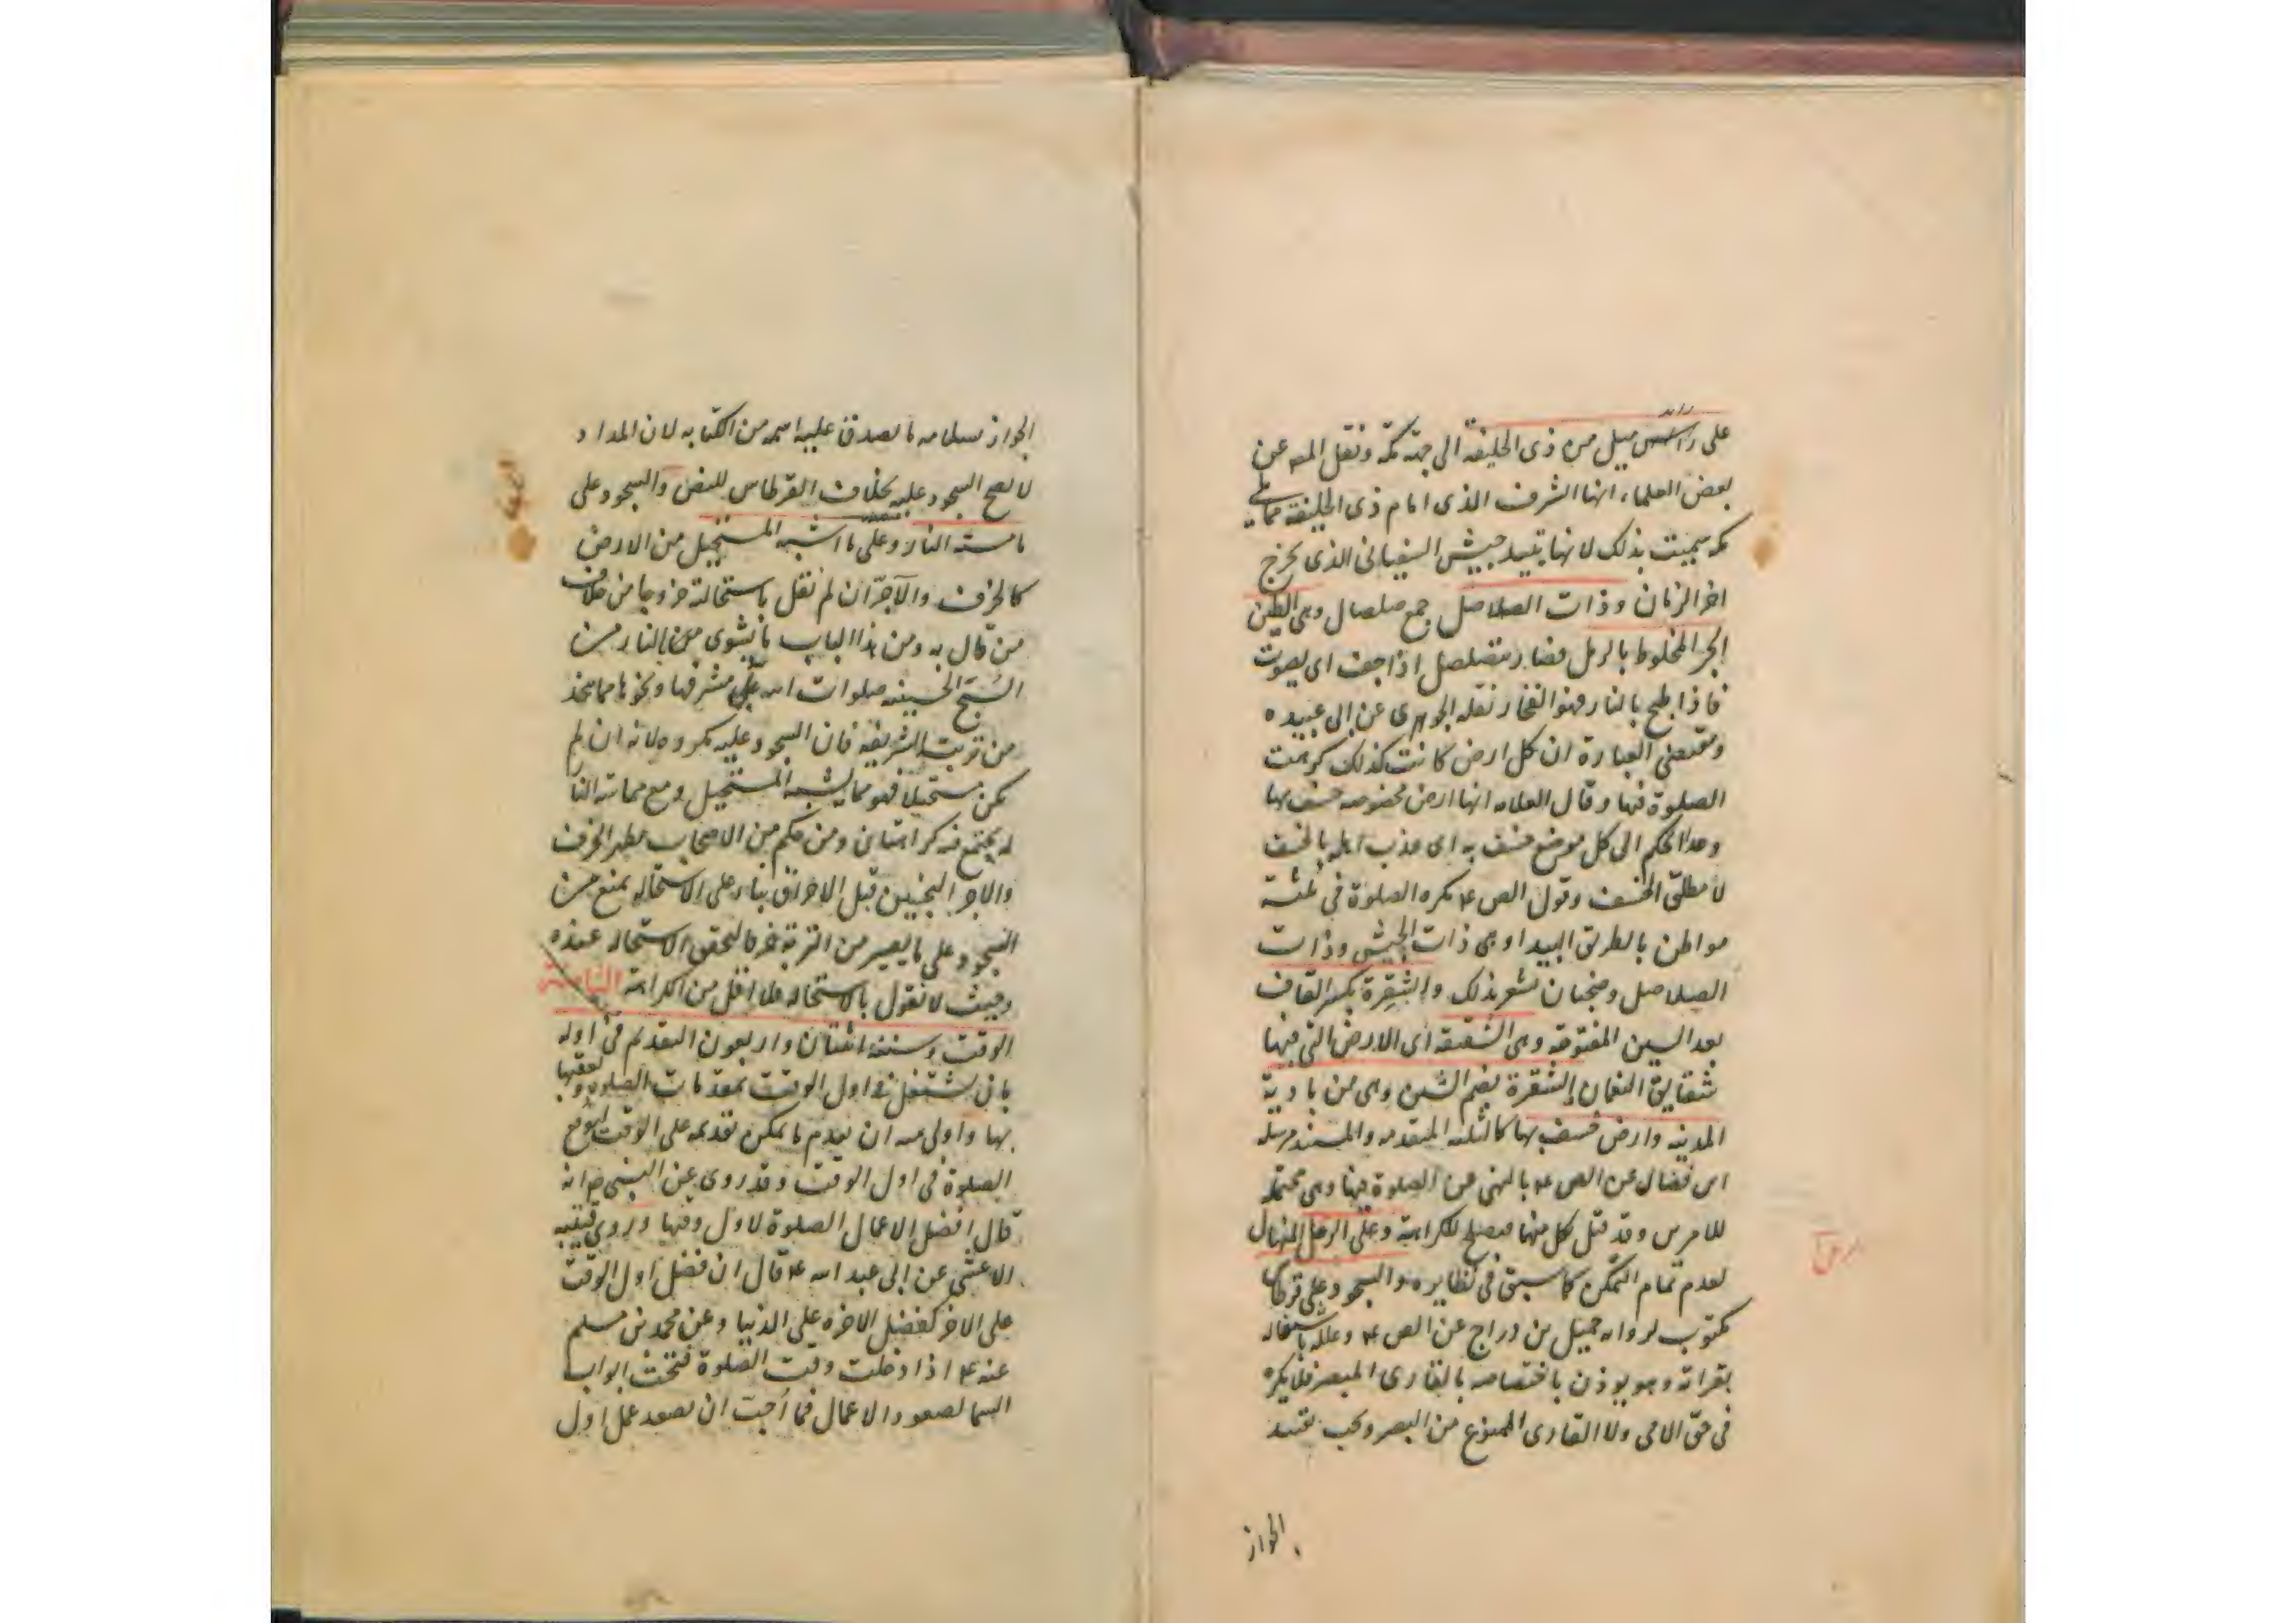 على راس ميل من ذى الحليفة الى جهة مكة ونقل المص عن
بعض العلماء انها الشرف الذى امام ذى الحليفة مما يلى
مكه سميت بذلك لانها تبيد جيش السفيانى الذى يخرج
اخر الزمان وذات الصلاصل جمع صلصال وهى الطين
الحر المخلوط بالرمل فصار يتصلصل اذا جف اى يصوت
فاذا طبخ بالنار فهو الفخار نقله الجوهرى عن ابى عبيده
ومقتضى العبارة ان كل ارض كانت كذلك كرهت
الصلوة فيها وقال العلامه انها ارض مخصوصه خسف بها
وعدا الحكم الى كل موضع خسف به اى عذب اهله بالخسف
لا مطلق الخسف وقول الص ع يكره الصلوة فى ثلثة
مواطن بالطريق البيدا وهى ذات الجيش وذات
الصلاصل وضجنان يشعر بذلك والشقرة بكسر القاف
بعد الشين المفتوحه وهى الشقيقه اى الارض التى فيها
شقايق النعمان الشقرة بضم الشين وهى من بادية
المدينه وارض خسف بها كالثلثه المتقدمه والمستند مرسله
ابن فضال عن الص ع بالنهى عن الصلوة فيها وهى محتملة
للامرين وقد قيل كل منهما فيصلح للكراهة وعلى الرمل المنهال
لعدم تمام التمكن كما سبق فى نظايره والسجود على قرطاس
مكتوب لروايه جميل بن دراج عن الص ع وعلله باشتغاله
بقراته وهو يوذن باختصاصه بالقارى المبصر فلا يكره
فى حق الامى ولا القارى الممنوع من البصر ويجب تقييد
الجواز
الجواز بملامسه ما يصدق عليه اسمه من الكتابه لان المداد
لا يصح السجود عليه بخلاف القرطاس للنص والسجود على
ما مسته النار وعلى ما اشبه المستحيل من الارض
كالخزف والآجر ان لم نقل باستحالته خروجا من خلاف
من قال به ومن هذا الباب ما يشوى بالنار من
السبح الحسينيه صلوات الله على مشرفها ونحوها مما يتخذ
من تربته الشريفه فان السجود عليه مكروه لانه ان لم
يكن مستحيلا فهو مما يشبه المستحيل ومع مماسته النا
له يجتمع فيه كراهتان ومن حكم من الاصحاب بطهر الخزف
والاجر النجسين قبل الاحراق بناء على الاستحاله يمنع من
السجود على ما يصير من التربة خزفا لتحقق الاستحاله عنده
وحيث لا نقول بالاستحاله فلا اقل من الكراهة الثامنة
الوقت وسننه اثنتان واربعون التقديم فى اوله
بان يشتغل فى اول الوقت بمقدمات الصلوه ويعقبها
بها واولى منه ان يقدم ما يمكن تقديمه على الوقت ليوقع
الصلوة فى اول الوقت وقد روى عن النبى ص انه
قال افضل الاعمال الصلوة لاول وقتها وروى قتيبه
الاعشى عن ابى عبد الله ع قال ان فضل اول الوقت
على الاخر كفضل الاخره على الدنيا وعن محمد بن مسلم
عنه ع اذا دخلت وقت الصلوة فتحت ابواب
السما لصعود الاعمال فما أحب ان يصعد عمل اول